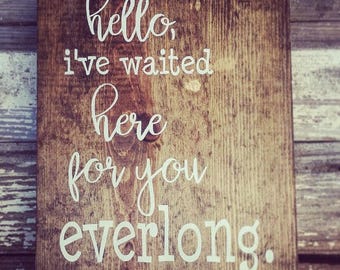 hello,
i've waited
here
for you
everlong.